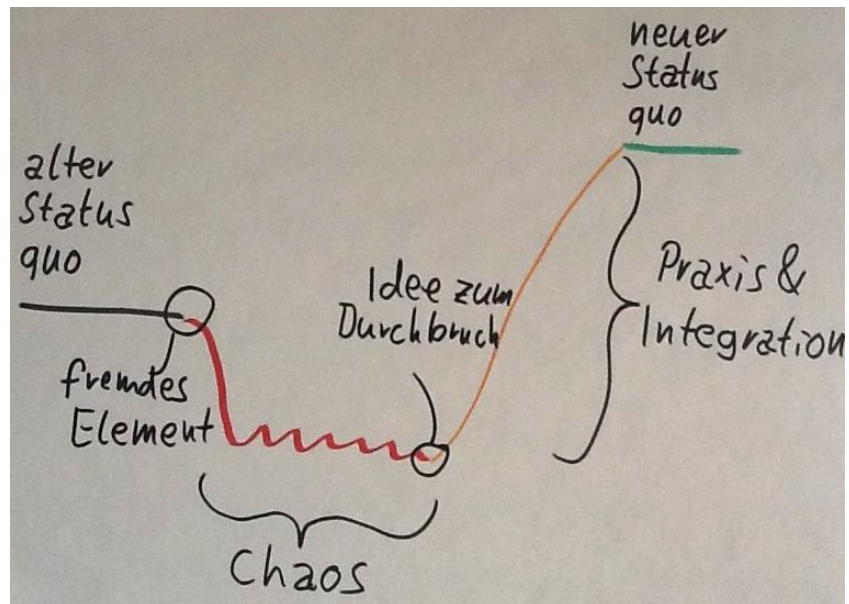 alter
Status
quo
fremdes
Element
Chaos
Idee zum
Durchbruch
neuer
Status
quo
Praxis &
Integration